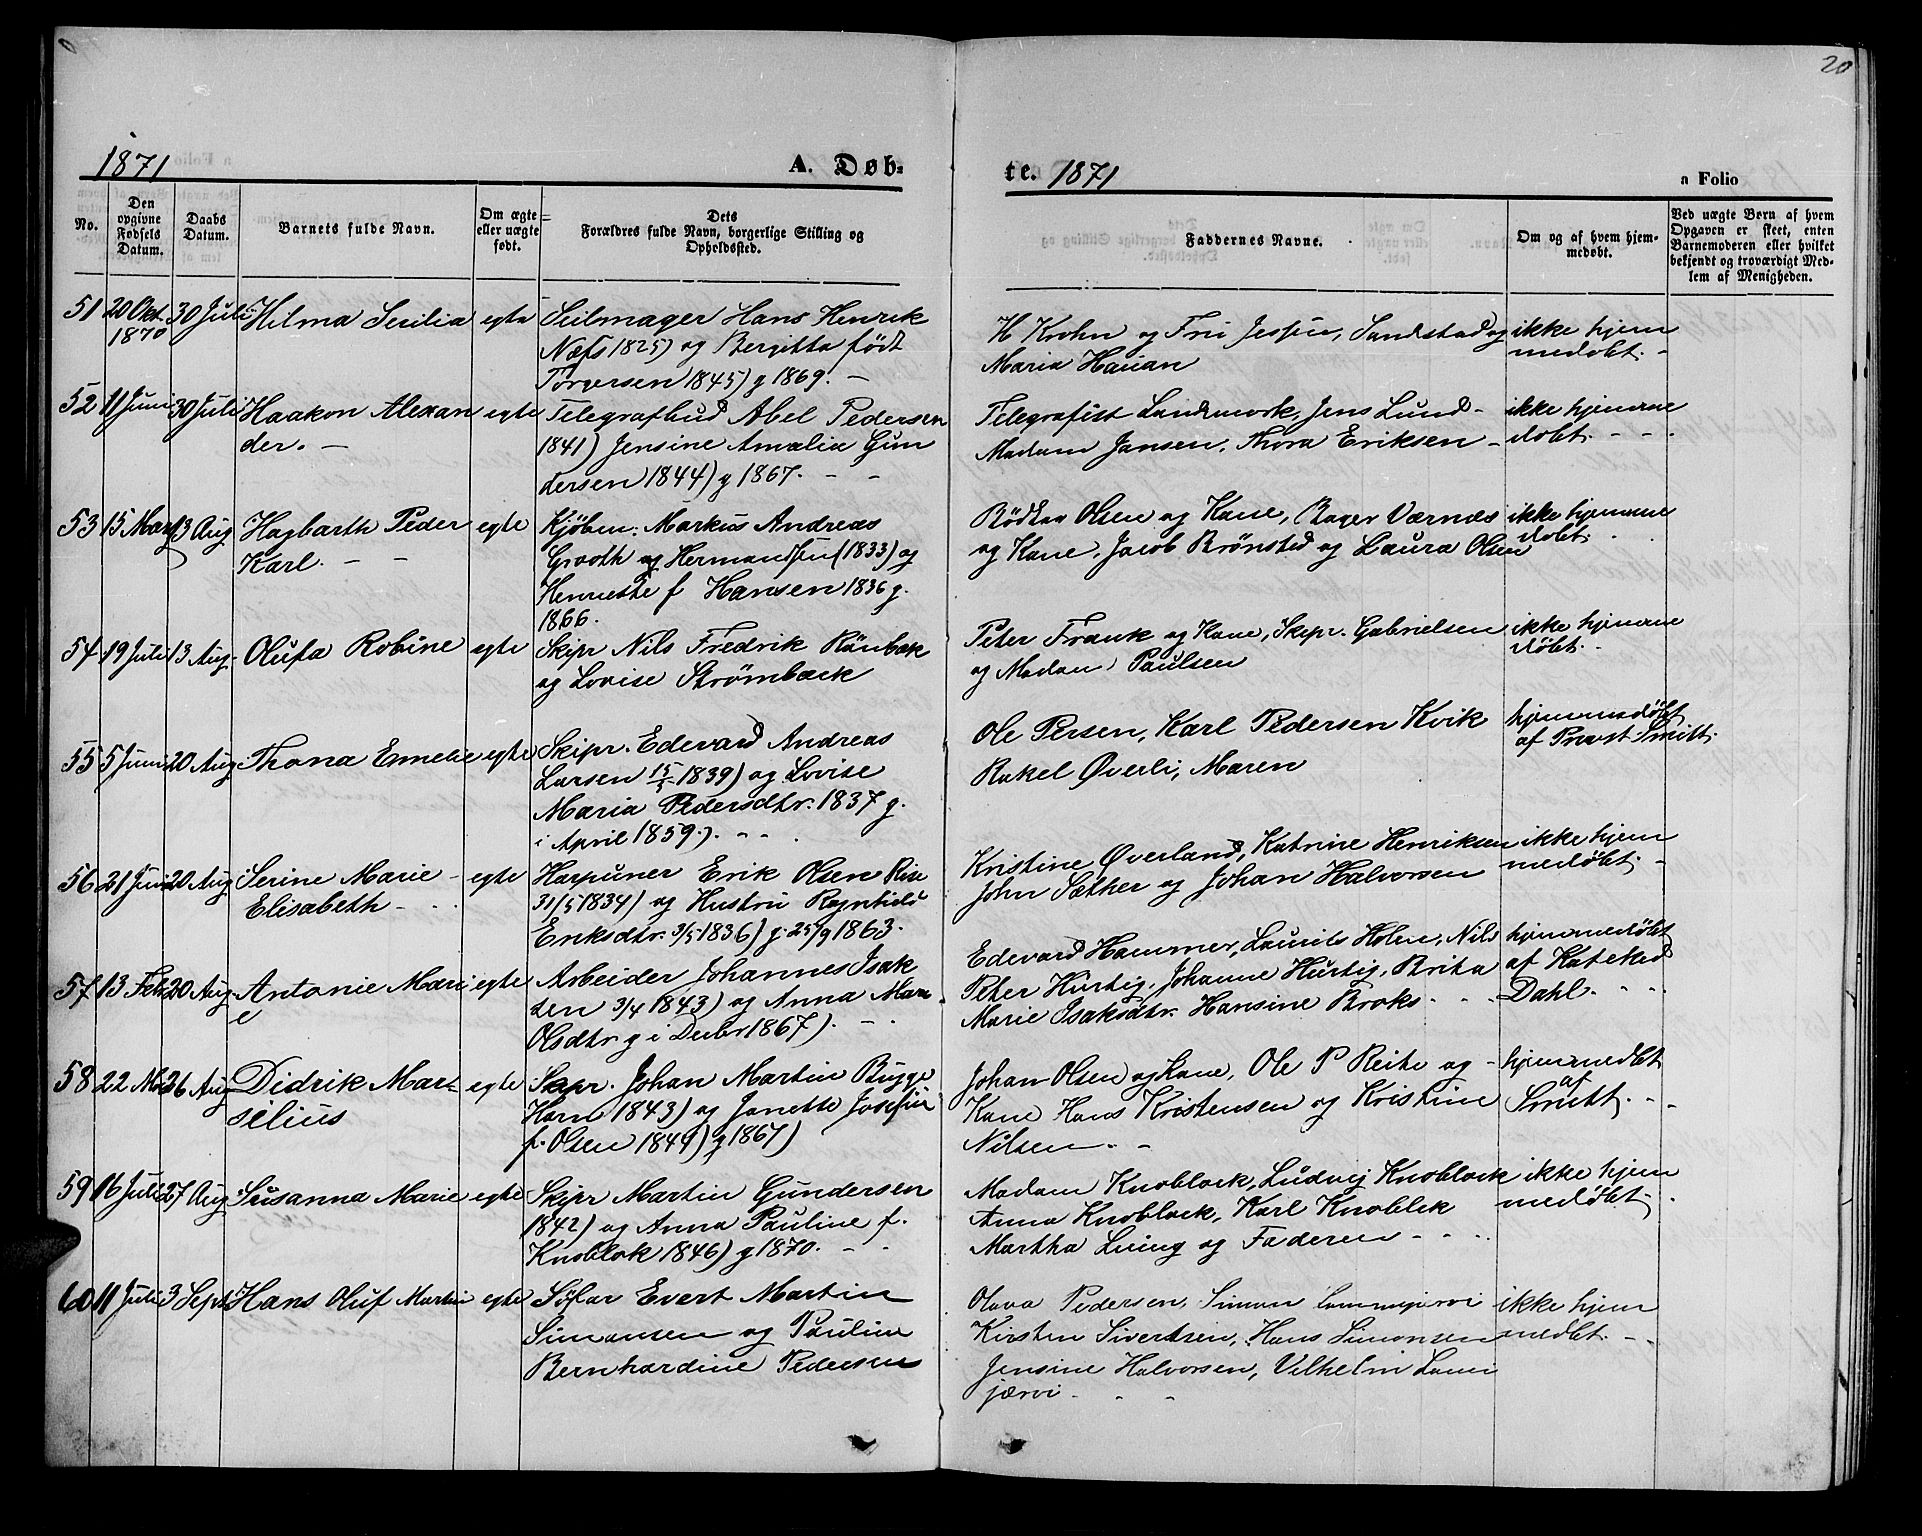 20
1871
A. Døb-
te. 1871
a Folio
No.
Den opgivne Fødsels Datum.
Daabs Datum.
Barnets fulde Navn.
Om ægte eller uægte født.
Dets Forældres fulde Navn, borgerlige Stilling og Opholdssted.
Faddernes Navne.
Om og af hvem hjemmedøbt.
Ved uægte Børn af hvem Opgaven er skeet, enten Barnemoderen eller hvilket bekjendt og troværdigt Medlem af Menigheden.
51 20 Okt 1870 30 Juli Hilma Secilia egte
Seilmager Hans Henrik
Næss 1825) og Bergitta født
Torgersen 1845) g 1869. -
H Krohn og Fru Jessen, Sandstad og
Maria Hauan
ikke hjem
medøbt. -
52 11 Juni 30 Juli Haakon Alexan
der. -
egte
Telegrafbud Abel Pedersen
1841) Jensine Amalia Gun
dersen 1844) g 1867. - -
Telegrafist Landmark, Jens Lund -
Madam Jansen, Thora Eriksen -
ikke hjemme
døbt. - -
53 15 Mar 13 Aug Hagbarth Peder
Karl. - -
egte
Kjøbm. Markus Andreas
Grooth og Hermansen (1833) og
Henriette f Hansen 1836 g.
1866.
Bødker Olsen og Kone, Bager Værnes
og Kone, Jacob Brønsted og Laura Olsen
ikke hjemme
døbt.
54 19 Juli 13 Aug. Olufa Robine egte
Skipr Nils Fredrik Rönbæk
og Lovise Strømbæck
Peter Frank og Kone, Skipr. Gabrielsen
og Madam Paulsen
ikke hjemme
døbt. -
55 5 Juni 20 Aug Thona Emelie egte
Skipr. Edevard Andreas
Larsen 15/5 1839) og Lovise
Maria Pedersdtr. 1837 g.
i April 1859.). - -
Ole Persen, Karl Pedersen Kvik
Rakel Øverli, Maren
hjemmedøbt
af Provst Smitt.
56 21 Juni 20 Aug Serine Marie -
Elisabeth -
egte
Harpuner Erik Olsen Rise
31/5 1834) og Hustru Ragnhild
Eriksdtr. 3/5 1836) g. 25/9 1863.
Kristine Øverland, Katrine Henriksen
John Sæther og Johan Halvorsen
ikke hjem
medøbt. -
57 13 Feb 20 Aug. Antonie Mari
e
egte
Arbeider Johannes Isak
sen 3/4 1843) og Anna Mari
Olsdtr g i Decbr 1867). - -
Edevard Hammer, Laurits Holm, Nils
Peter Hurtig, Johanne Hurtig, Brita
Marie Isaksdtr. Hansine Broks. - -
hjemmedøbt
af Kateked
Dahl. - -
58 22 Mai 26 Aug Didrik Mar-
silius
egte
Skipr. Johan Martin Bugge
Horn 1843) og Janette Josefin
f. Olsen 1849) g 1867)
Johan Olsen og Kone, Ole P Reite og -
Kone Hans Kristensen og Kristine
Nilsen. -
hjemmedbt
af
Smitt. - -
59 16 Juli 27 Aug Susanna Marie egte
Skipr Martin Gundersen
1842) og Anna Pauline f.
Knoblok 1846) g 1870. - -
Madam Knoblock, Ludvig Knoblock
Anna Knoblock, Karl Knoblek
Martha Luing og Faderen - - -
ikke hjem
medøbt. -
60 11 Juli 3 Sept Hans Oluf Martin egte
Söfar Evert Martin
Simonsen og Pauline
Bernhardine Pedersen
Olava Pedersen, Simon Lammejærvi
Kirsten Sivertsen, Hans Simonsen
Jensine Halvorsen, Vilhelm Lam
jærvi - - -
ikke hjem
medbt. - -